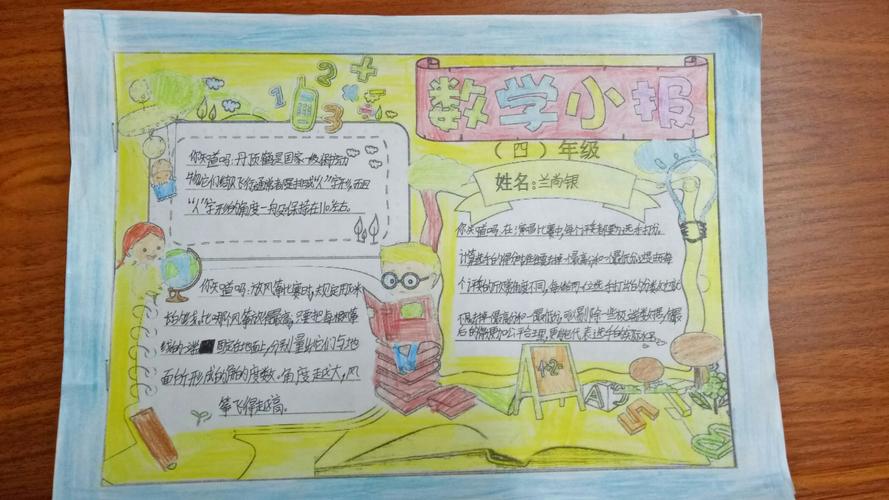 数学小报
（四）年级
姓名：兰尚银
你知道吗：丹顶鹤是国家一级保护动
物它们结队飞行通常都要排成"人"字形。而且
"人"字形的角度一般保持在110左右。
你知道吗：放风筝比赛时，规定用米
长的线，比哪风筝放得最高，只要把每根风筝
线的一端固定在地面上，分别量出它们与地
面所形成的角的度数。角度越大，风
筝飞得越高。
你知道吗，在演唱比赛中，每个评委都要为选手打分。
计算选手的得分时准要去掉一个最高分和一个最低分这是由每
个评委的欣赏角度不同，每位选手打出的分差
去掉一个最高分和一个最低分，可以剔除一些极端数据，使最
后的得更加公平合理，更能代表选手的实际水平
1+2=
1
2
3